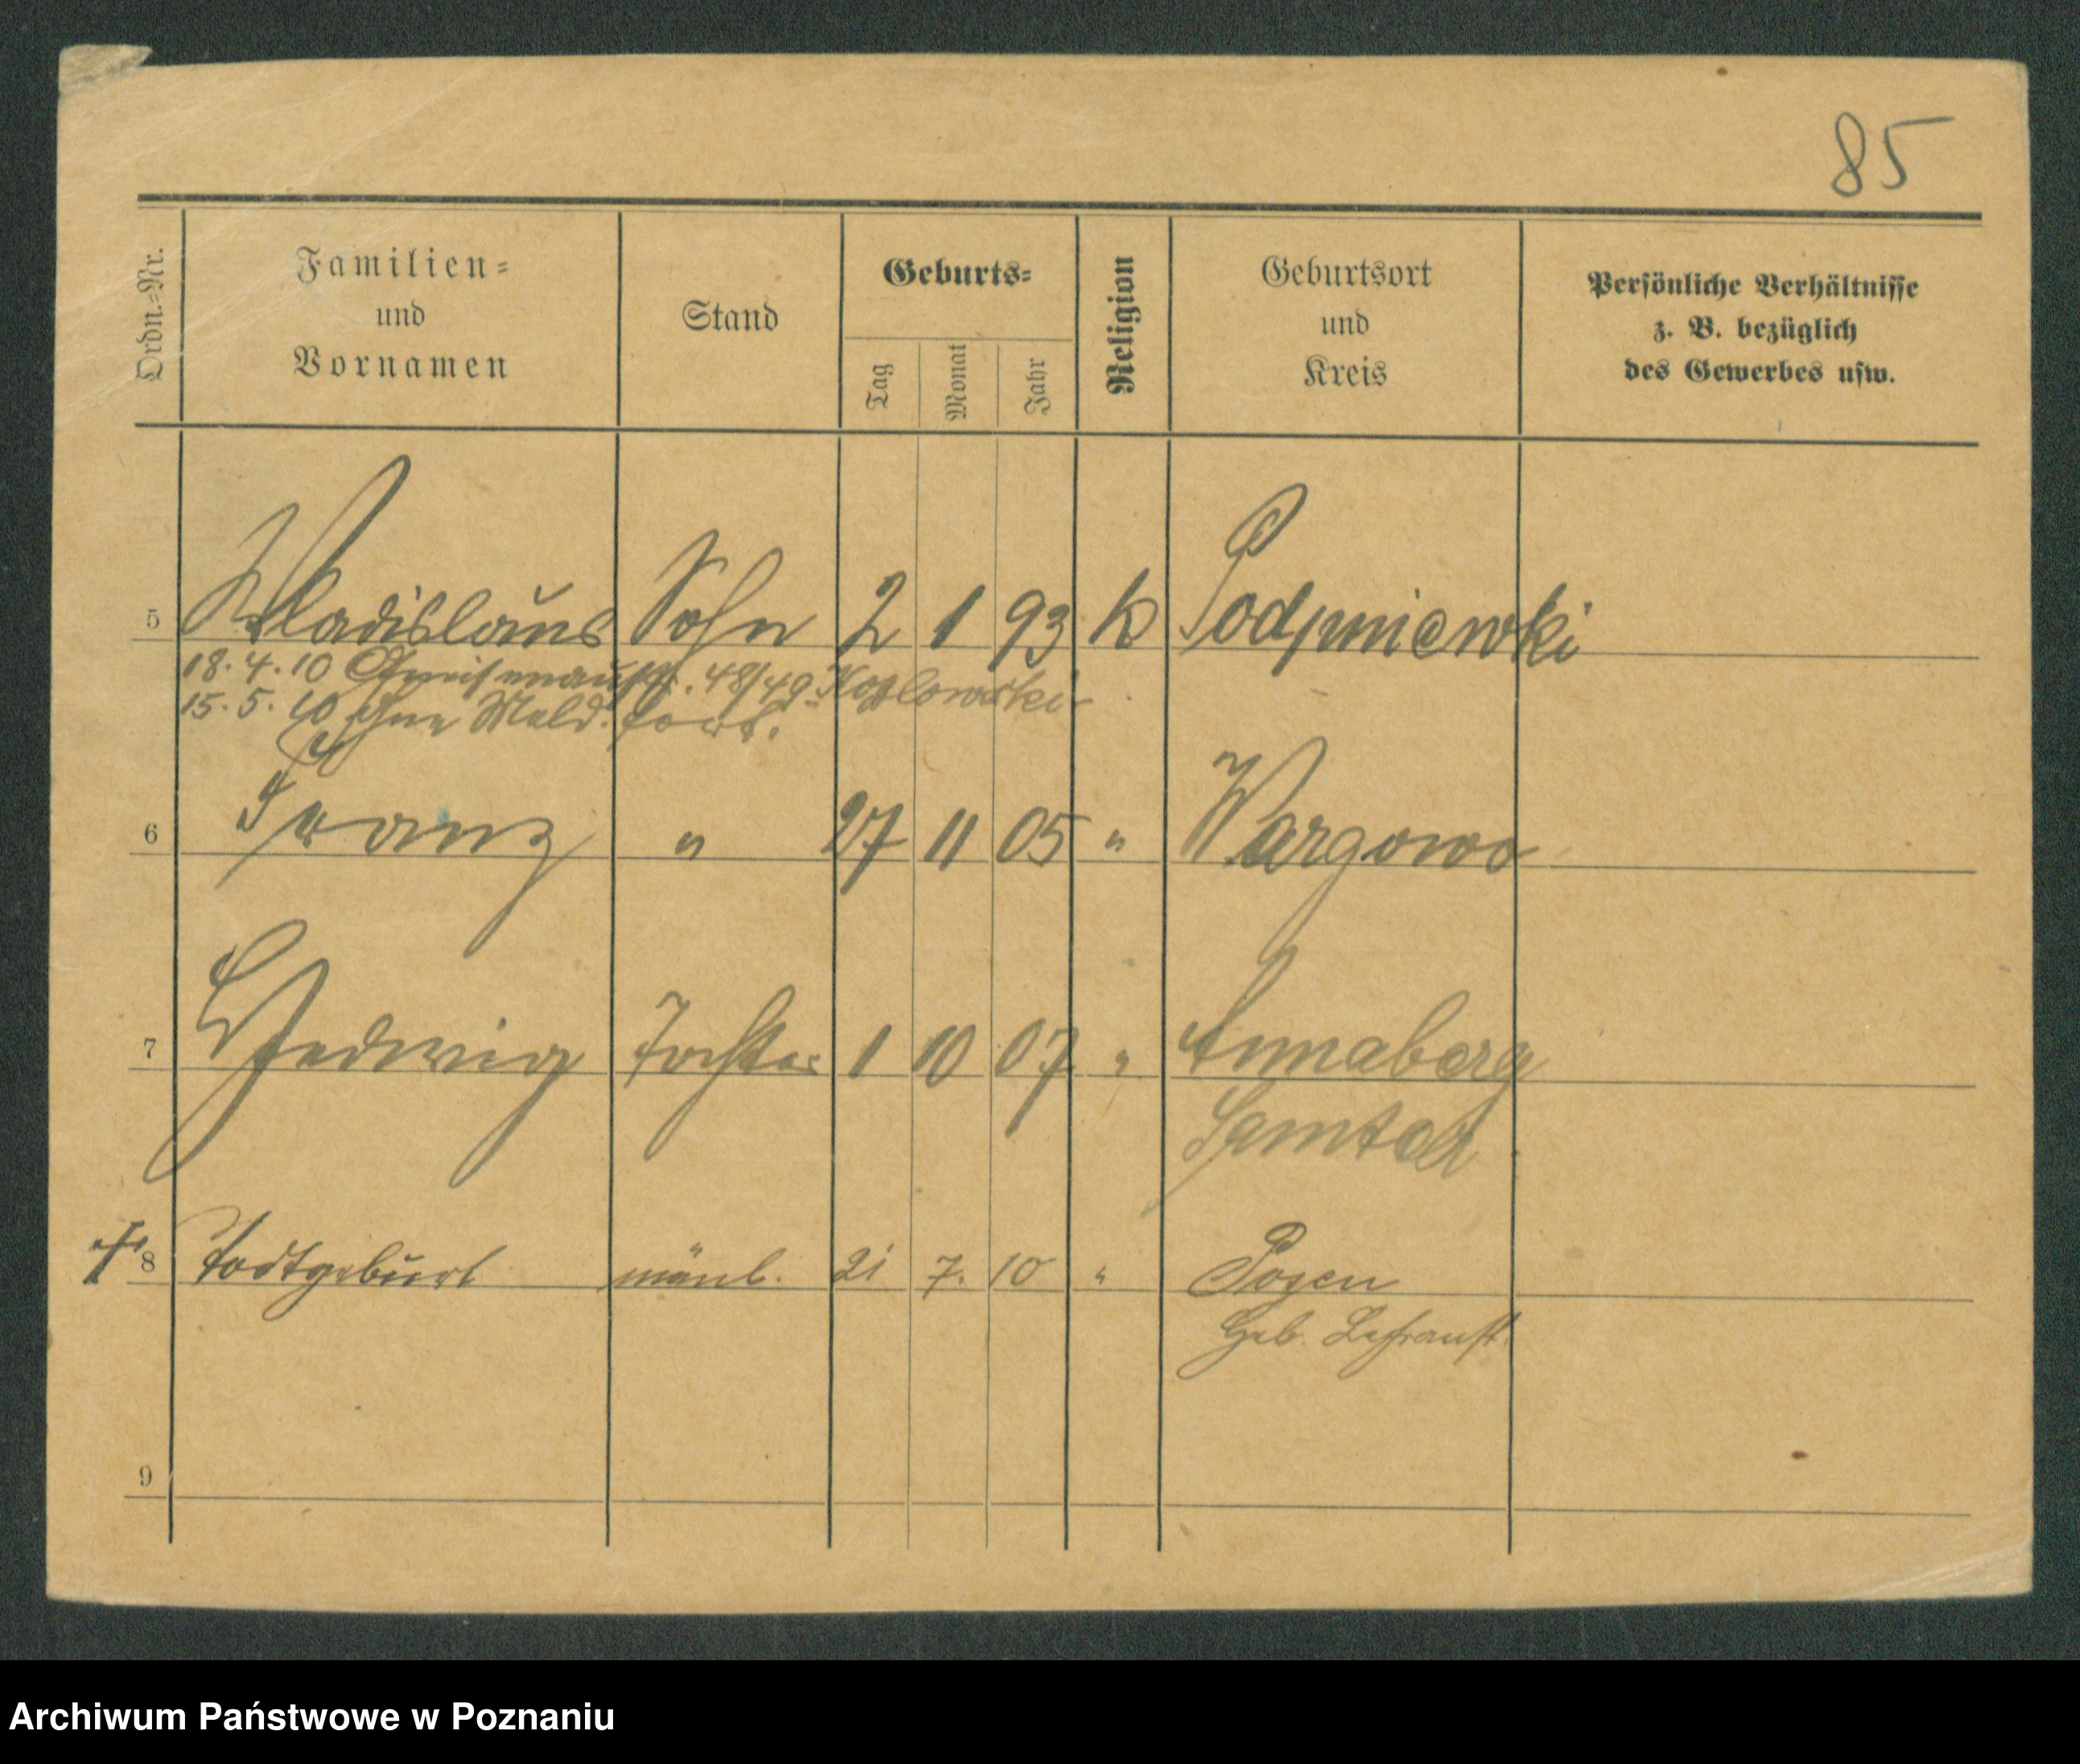 85
Ordn.-Nr. Familien- und Vornamen Stand Geburts- Tag Monat Jahr Religion Geburtsort und Kreis Persönliche Verhältnisse z. B. bezüglich des Gewerbes usw.
5 Wladislaus Sohn 2 1 93 k Podpniewki
18. 4. 10 Gneisenaustr. 48/49 Kozlowski
15. 5. 10 ohne Meld. fort.
6 Franz " 27 11 05 " Wargowo
7 Hedwig Tochter 1 10 07 " Annaberg
Samter
† 8 Todtgeburt männl. 21 7. 10 " Posen
Geb. Lehranst.
9
Archiwum Państwowe w Poznaniu